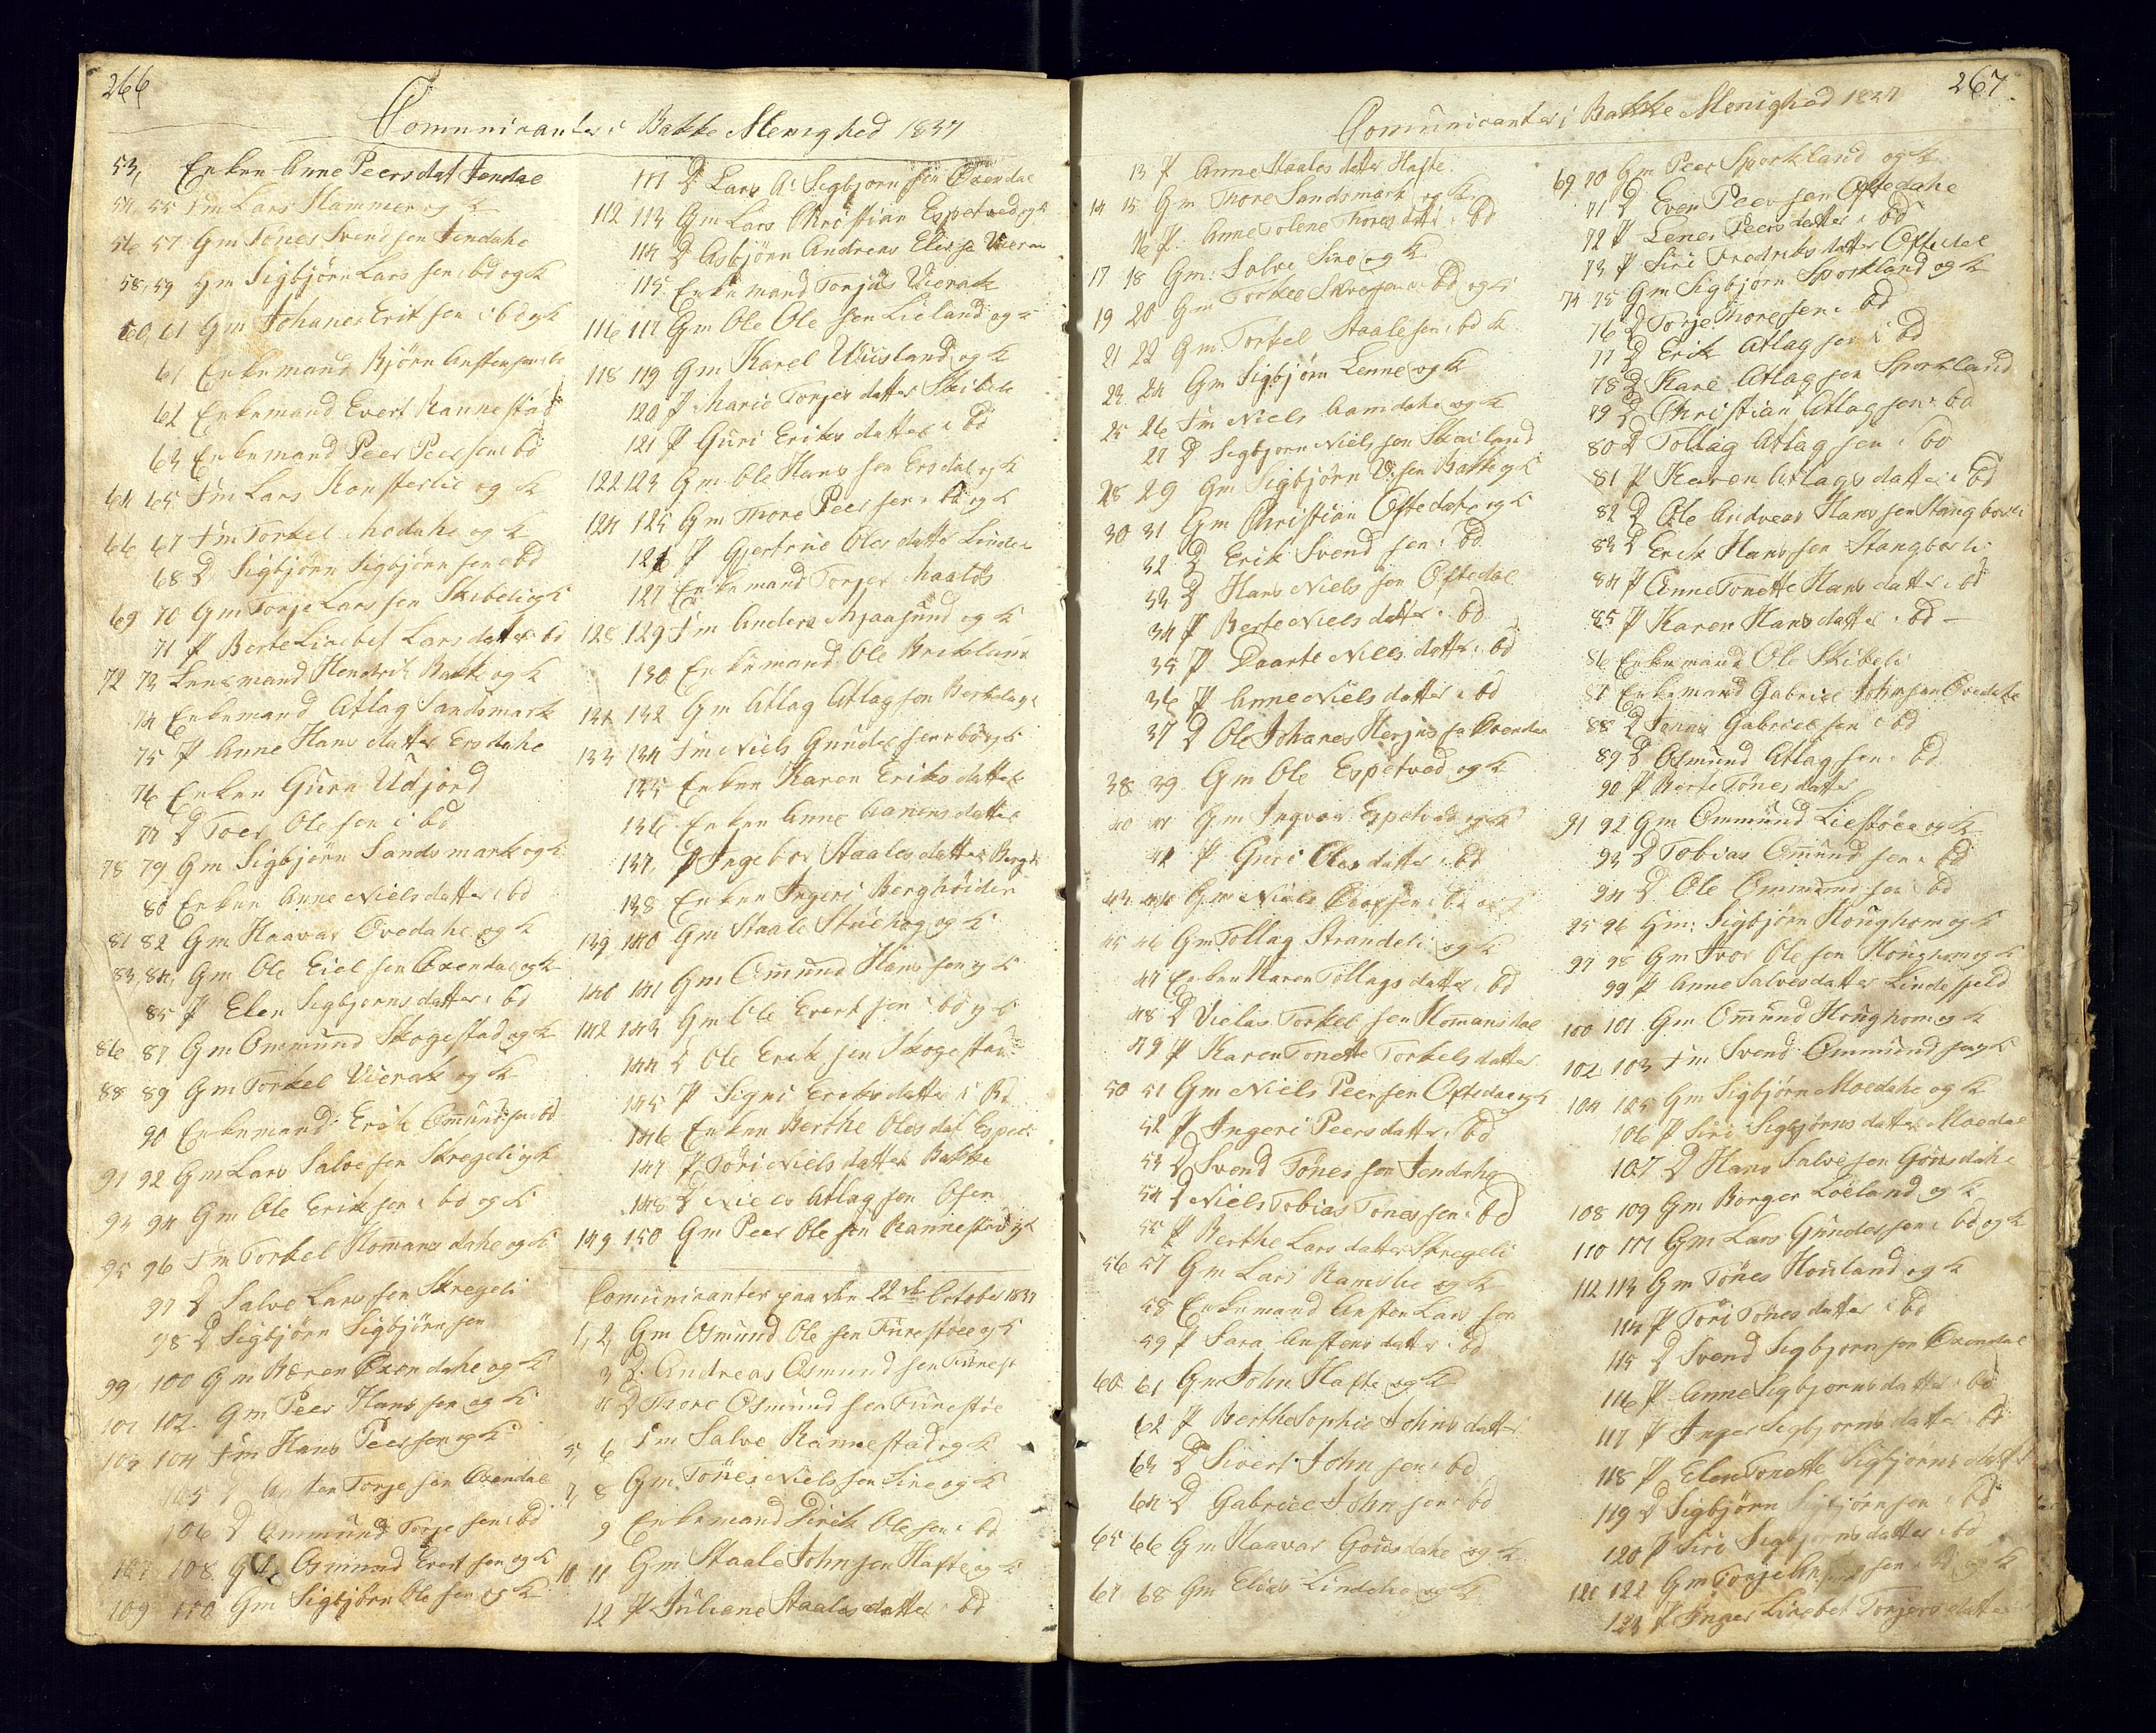 266
Comunicanter i Bakke Menighed 1837
53, Enken Anne Peersdat Jendal
54, 55 Fm Lars Hammer og K
56, 57 Gm Tönes Svendsen Jendahe
58, 59 Gm Sigbjörn Larssen i bd og K
60, 61 Gm Johanes Eriksen i bd og K
61 Enkemand Björn
62 Enkemand Evert Rannestad
63 Enkemand Peer Peersen i bd
64 65 Fm Lars og K
66 67 Fm Torkel Modahe og K
68 D Sigbjörn Sigbjörnsen i bd
69 70 Gm Torje Larssen Skibeli og K
71 P Berte Lisebet Larsdatter i bd
72 73 Lensmand Hendrik Bakke og K
74 Enkemand Atlag Sandsmark
75 P Anne Hansdatter Ersdahe
76 Enken Guru Udjord
77 D Toer Olesen i bd
78 79 Gm Sigbjörn Sandsmark og K
80 Enken Anne Nielsdatter i bd
81 82 Gm Haavar Ovedahe og K
83, 84, Gm Ole Eielsen Oxendal og K
85 P Elen Sigbjornsdatter i bd
86 87 Gm Ommund Skogestad og K
88 89 Gm Torkel Vierak og K
90 Enkemand Erik Omundsen i bd
91 92 Gm Lars Salvesen Skregeli og K
93 94 Gm Ole Eriksen i bd og K
95 96 Fm Torkel Homansdahe og K
97 D Salve Larssen Skregeli
98 D Sigbjörn Sigbjörnsen
99, 100 Gm Bæren Oxendahe og K
101 102 Gm Peer Hanssen og K
103 104 Fm Hans Peersen og K
105 D Torjesen Oxendal
106 D Ommund Torjesen i bd
107 108 Gm Osmund Evertsen og K
109 110 Gm Sigbjörn Olesen og K
111 D Lars A: Sigbjornsen Oxendal
112 113 Gm Lars Christian Espetved og K
114 D Asbjörn Andreas Vierak
115 Enkemand Torjus Vierak
116 117 Gm Ole Olesen Lieland og K
118 119 Gm Karel og K
120 P Marie Torjesdatter Skibeli
121 P Guri Eriksdatter i bd
122 123 Gm Ole Hanssen Ersdal og K
124 125 Gm Thore Peersen i bd og K
126 P Gjertrue Olesdatter Linde
127 Enkemand Torjer
128 129 Fm Anders Mjaasund og K
130 Enkemand Ole
131 132 Gm Atlag Atlagsen og K
133 134 Fm Niels Gundersen i bd og K
135 Enken Karen Eriksdatter
136 Enken Anne Aanensdatter
137, P Ingebor Staalesdatter
138 Enken Ingeri Berghöiden
139 140 Gm Staale og K
140 141 Gm Omund Hanssen og K
142 143 Gm Ole Evertsen i bd og K
144 D Ole Eriksen Skogestad
145 P Signi Eriksdatter i bd
146 Enken Berthe Olesdat
147 P Töri Nielsdatter Bakke
148 D Niels Atlagsen Osen
149 150 Gm Peer Olesen Rannestad og K
Comunicanter paa den 22de October 1837
1, 2, Gm Osmund Olesen Furestöe og K
3 D. Andreas Osmundsen Furest
4 D Thore Osmundsen Furestöe
5, 6 Fm Salve Rannestad og K
7, 8 Gm Tönes Nielssen Sire og K
9 Enkemand Dirik Olesen i bd
10 11 Gm Staale Johnsen Hafte og K
12 P Juliane Staalesdatter i bd
267.
Comunicanter i Bakke Menighed 1837
13 P Anne Staalesdatter Hafte
14 15 Gm Thore Sandsmark og K
16 P. Anne Tolene Thoresdatter i bd
17 18 Gm: Salve Sire og K
19 20 Gm Torkel i bd og K
21 22 Gm Torkel Staalesen i bd K
23 24 Gm Sigbjörn Lenne og K
25 26 Fm Niels Aamdahe og K
27 D Segbjorn Nielssen Skailand
28 29 Gm Sigbjörn Bakke og K
30 31 Gm Christian Oftedahe og K
32 D Erik Svendsen i bd
33 D Hans Nielssen Oftedal
34 P Berte Nielsdatter i bd
35 P Daarte Nielsdatter i bd
36 P Anne Nielsdatter i bd
37 D Ole Johanes Oxendal
38 39 Gm Ole Espetved og K
40 41 Gm Ingvar Espetved og K
42 P Guri Olesdatter i bd
43 44 Gm Niels i bd og K
45 46 Gm Tollag Strandeli og K
47 Enken Karen Tollagsdatter i bd
48 D Vielas Torkelsen Homansdal
49 P Karen Tonette Torkelsdatter
50 51 Gm Niels Peersen Oftedal og K
52 P Ingeri Peersdatter i bd
53 D Svend Tönessen Jendahe
54 D Niels Tobias Tonessen i bd
55 P Berthe Larsdatter Skregeli
56 57 Gm Lars og K
58 Enkemand Ansten Larssen
59 P Sara Anstensdatter i bd
60 61 Gm John Hafte og K
62 P Berthe Sophie Johnsdatter
63 D Sivert Johnsen i bd
64 D Gabriel Johnsen i bd
65 66 Gm Haavar Gousdahe og K
67 68 Gm Elias Lindeha og K
69 70 Gm Peer Sporkland og K
71 D Even Peersen Oftedahe
72 P Lene Peersdatter i bd
73 P Siri Fredriksdatter Oftedal
74 75 Gm Sigbjörn Sporkland og K
76 D Torje Thoressen i bd
77 D Erik Atlagsen i bd
78 D Kare Atlagsen Sporkland
79 D Christian Atlagsen i bd
80 D Tollag Atlagsen i bd
81 P Karen Atlagsdatter i bd
82 D Ole Andreas Hanssen Stangborli
83 D Erik Hanssen Stangborli
84 P Anne Tonette Hansdatter i bd
85 P Karen Hansdatter i bd
86 Enkemand Ole Skibeli
87 Enkemand Gabriel Johnsen Ovedahe
88 D Jonas Gabrielsen i bd
89 D Osmund Atlagsen i bd
90 P Berte Tönesdatter
91 92 Gm Ommund Liestöen og K
93 D Tobias Omundsen i bd
94 D Ole Ommundsen i bd
95 96 Gm: Sigbjörn Houghom og K
97 98 Gm Ivor Olesen Houghom og K
99 P Anne Salvesdatter Lindefjeld
100 101 Gm Omund Houghom og K
102 103 Fm Svend Ommundsen og K
104 105 Gm Sigbjörn Moedahe og K
106 P Siri Sigbjörnsdatter Moedal
107 D Hans Salvesen Gousdahe
108 109 Gm Borger Loeland og K
110 111 Gm Lars Gundersen i bd og K
112 113 Gm Tönes Houland og K
114 P Töri Tönesdatter i bd
115 D Svend Sigbjornsen Oxendal
116 P Anne Sigbjornsdatter i bd
117 P Inger Sigbjornsdatter i bd
118 P Elen Tonette Sigbjörnsdatter
119 D Sigbjörn Sigbjörnsen i bd
120 P Siri Sigbjornsdatter i bd
121 122 Gm Torje i bd og K
123 P Inger Lisebet Torjersdatter